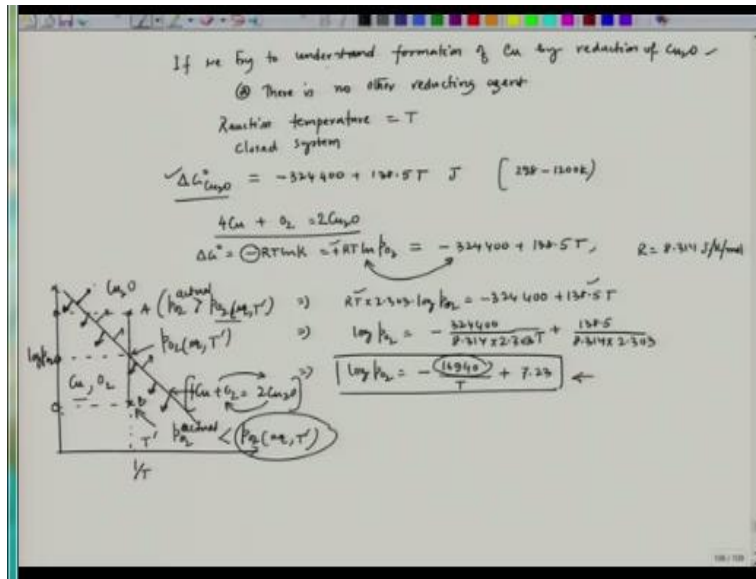 If we try to understand formation of Cu by reduction of Cu2O
@ There is no other reducting agent
Reaction temperature = T
Closed system
ΔG°Cu2O = -324400 + 138.5T J [298 - 1200K]
4Cu + O2 = 2Cu2O
ΔG° = -RT ln K = +RT ln pO2 = -324400 + 138.5T, R = 8.314 J/K/mol
⇒ RT × 2.303 log pO2 = -324400 + 138.5T
⇒ log pO2 = - 324400 / 8.314 × 2.303T + 138.5 / 8.314 × 2.303
⇒ log pO2 = - 16940 / T + 7.23 ←
Cu2O
A (pO2 actual > pO2(eq, T'))
pO2(eq, T')
log pO2
Cu, O2
(4Cu + O2 = 2Cu2O)
B
T' pO2 actual < pO2(eq, T')
1/T